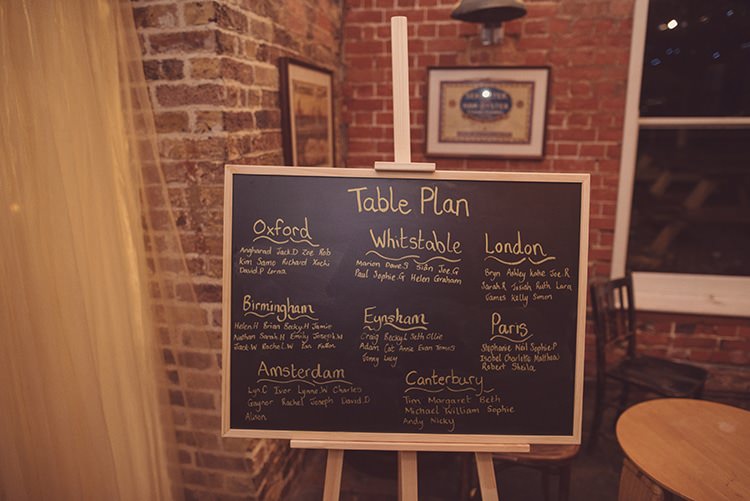 Table Plan
Oxford
Angharad Jack.D Zoe Rob
Kim Samo Richard Xochi
David.P Lorna
Whitstable
Marion Dave.S Sian Joe.G
Paul Sophie.G Helen Graham
London
Bryn Ashley Luke Joe.R
Sarah.R Josiah Ruth Lara
James Kelly Simon
Birmingham
Helen.H Brian Becky.H Jamie
Nathan Sarah.H Emily Joseph.W
Jack.W Rachel.W Ian
Eynsham
Craig Becky.L Seth Ollie
Adam Cat Annie Evan James
Jonny Lucy
Paris
Stephanie Neil Sophie.P
Isobel Charlotte Matthew
Robert Sheila
Amsterdam
Lyn.C Ivor Lynne.W Charles
Gaynor Rachel Joseph David.D
Alison
Canterbury
Tim Margaret Beth
Michael William Sophie
Andy Nicky